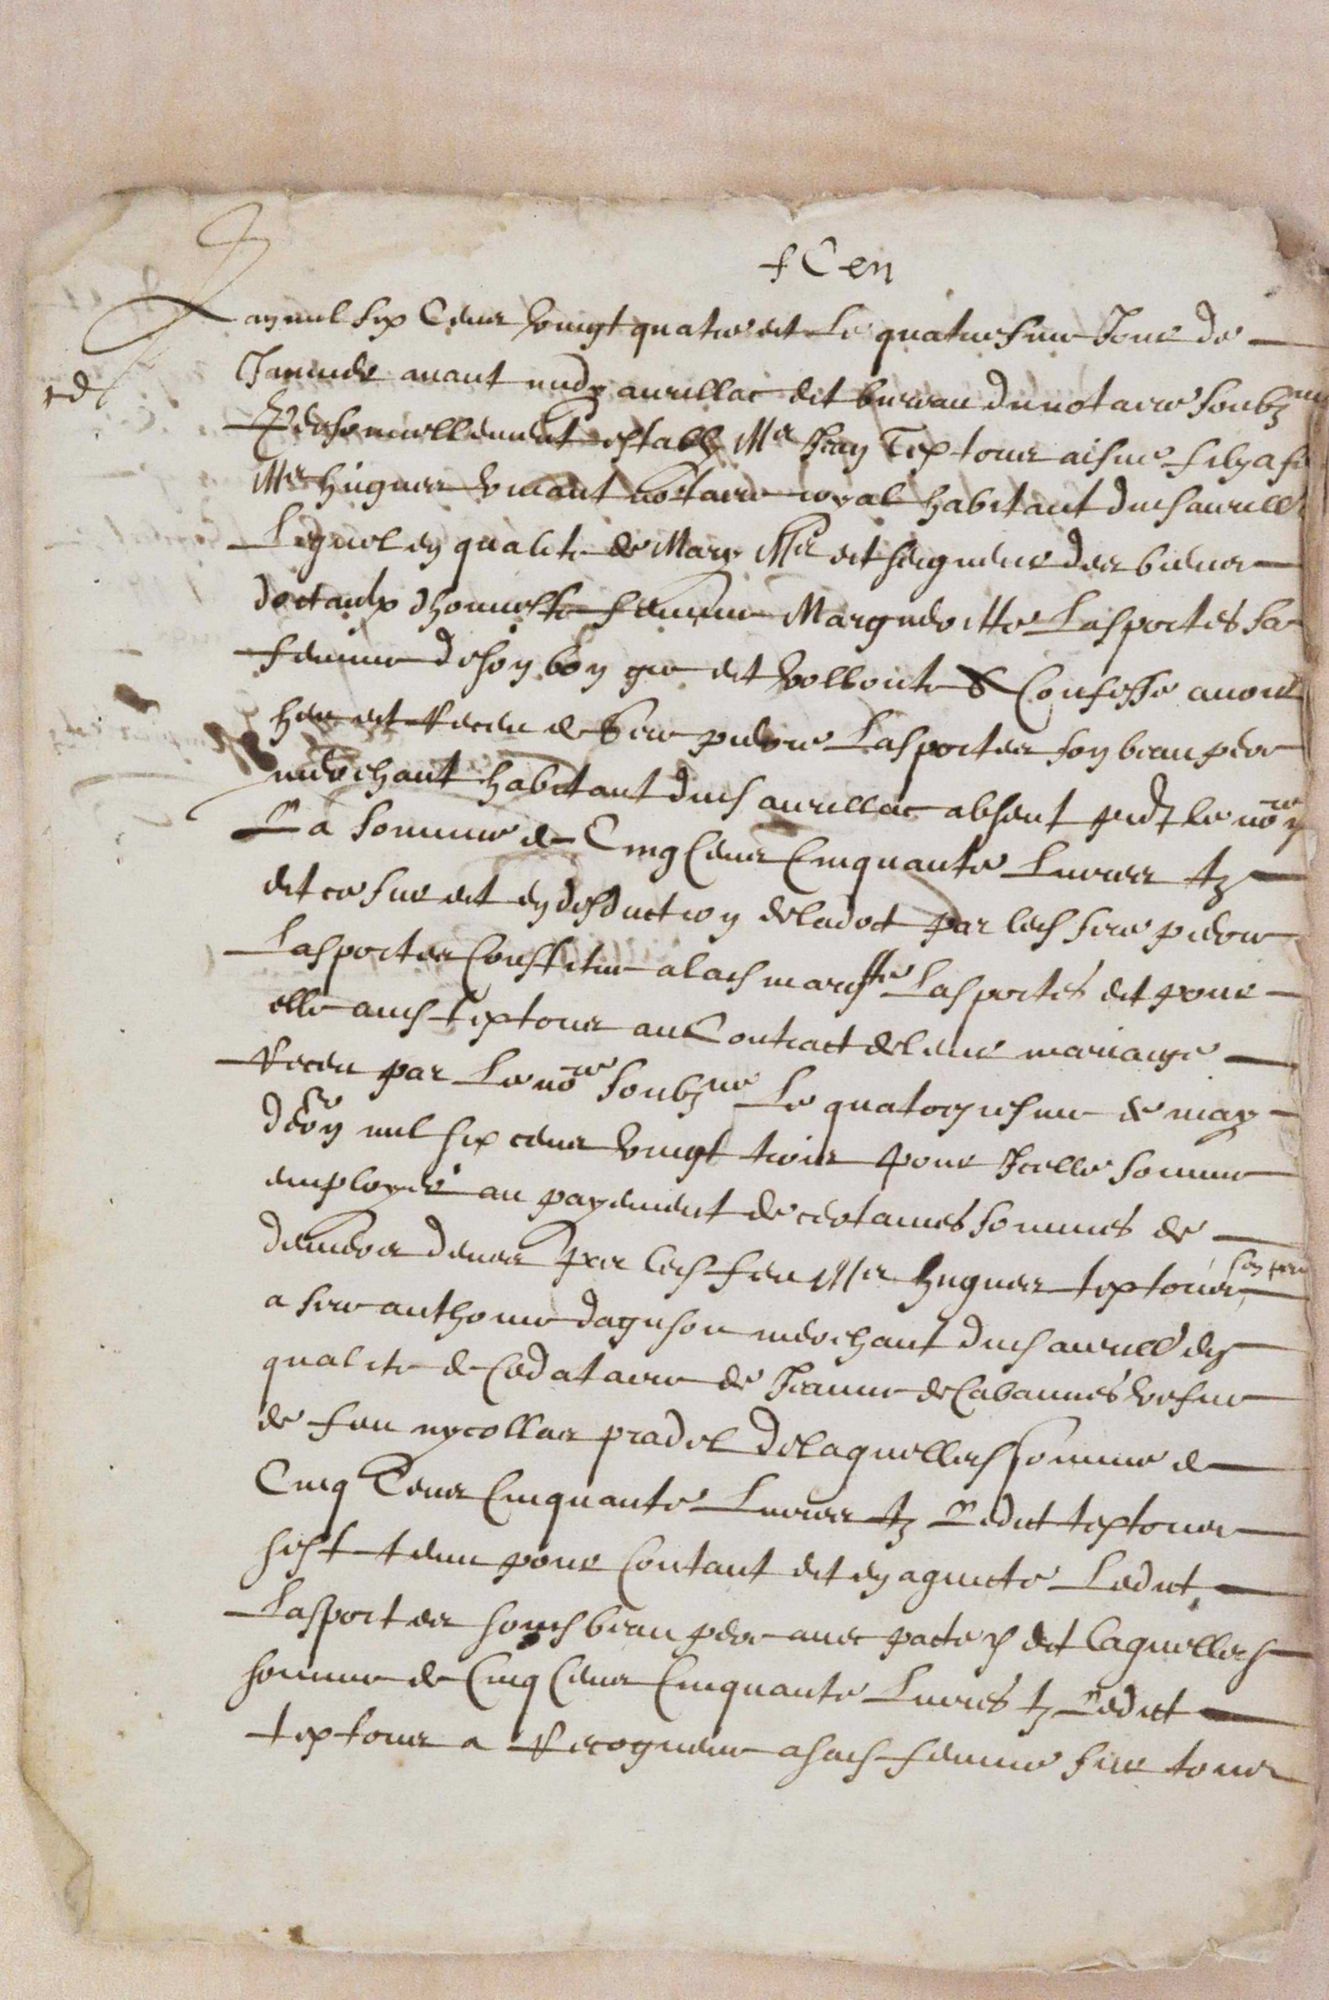 f C en
L an mil six Cens vingt quatre et le quatriesme Jour de
Janvier avant midy aurillac et bureau du notaire soubz.ne
ed
Personnellement estably Me Jean Textoris aisne filz a f
Me hugues vivant notaire royal habitant dud aurill
Lequel en qualite de Mary Me et seigneur des biens
dotaulx dhonneste femme Margueritte Lasportes sa
femme de son bon gre et vollonte & Confesse avoir
heu et Receu de Sire pierre Lasportes son beau pere
merchant habitant dud aurillac absent le nore
La somme de Cinq Cens Cinquante Livres tz
et ce sur et en desduction de la dot par led sire pierre
Lasportes Constitue a lad margtte Lasportes et pour
elle aud textoris au Contract de leur mariaige
Receu par le nore soubz.ne Le quatorziesme de may
dern mil six cens vingt trois pour Icelle somme
employer au payement de certaines sommes de
deniers deues par led feu Me hugues textoris son pere
a sire anthoine daguson merchant dud aurill en
qualite de Cedataire de Jeanne de Cabannes vefve
de feu nycollas pradel de laquelle somme de
Cinq Cens Cinquante Livres tz Ledict textoris
sest tenu pour Contant et en a quicte Ledict
Lasportes sond beau pere avec pacte et laquelle
somme de Cinq Cens Cinquante Livres tz Ledict
textoris a Recogneue a sad femme sur tous